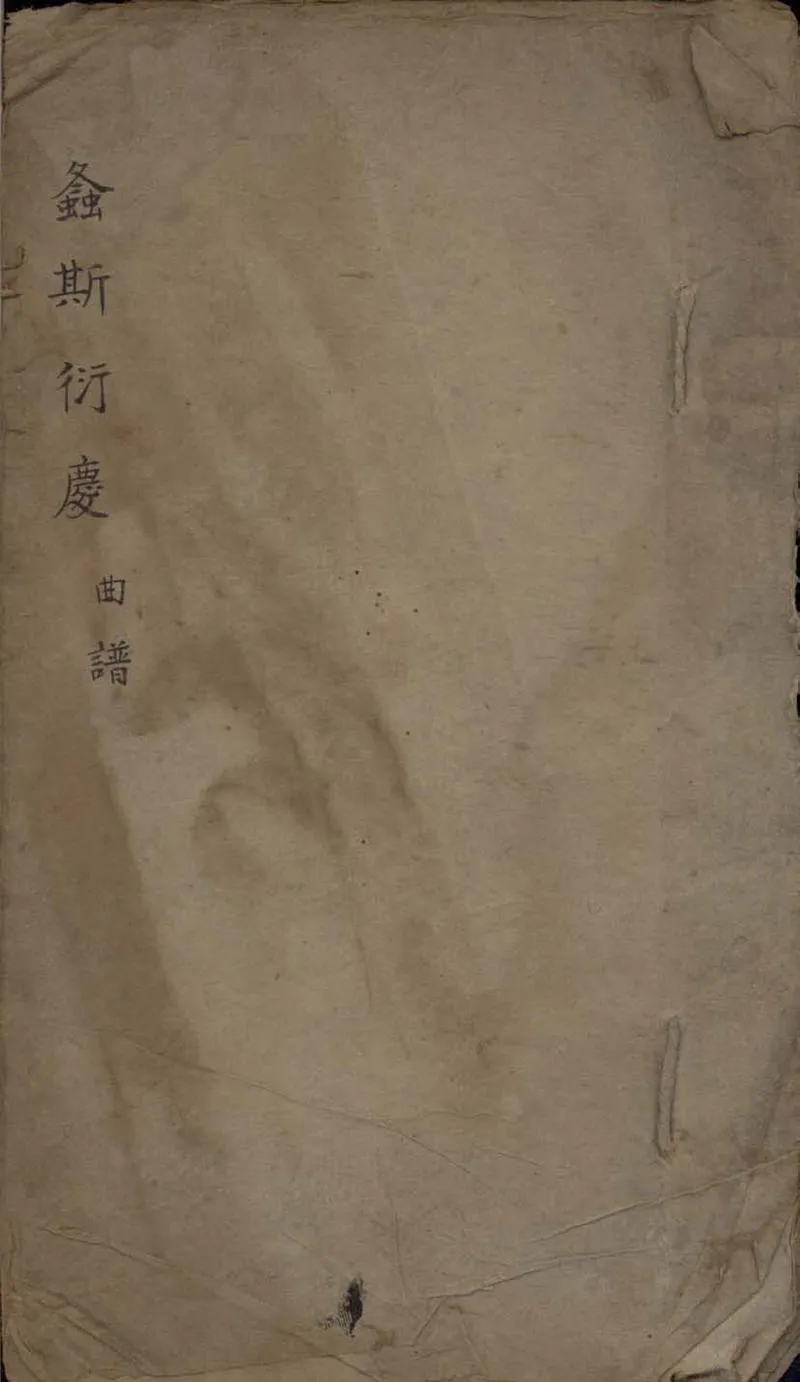 螽斯衍慶
曲譜